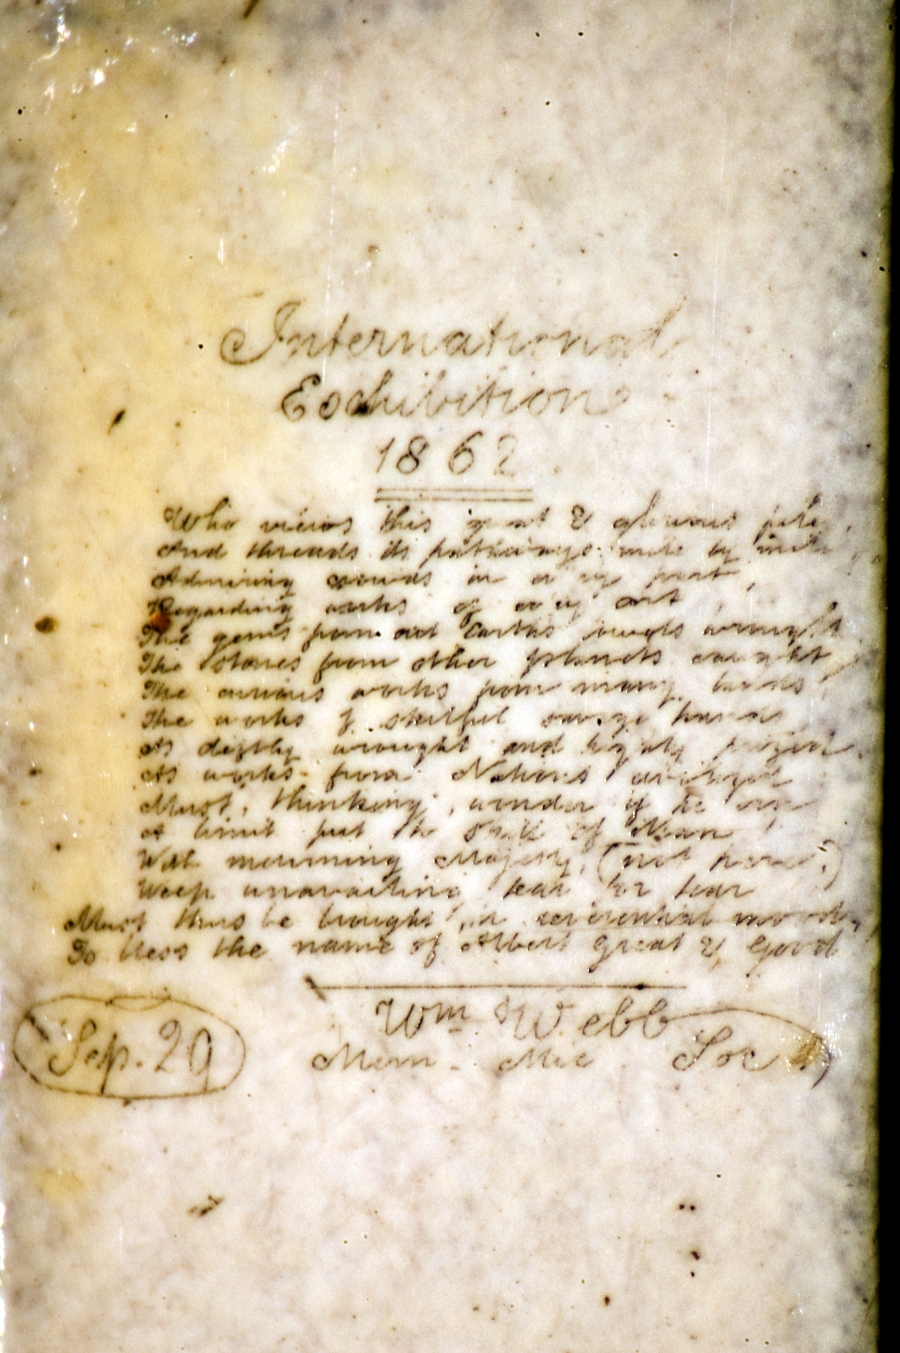 International
Exhibition
1862
Who views this great & glorious pile,
And threads its pathways mile by mile,
Admiring crowds in every part,
Regarding works of every art
The gems from out Earth's bowels wrought
The stones from other planets caught,
The curious works from many lands
The works of skilful savage hands
As deftly wrought and highly prized
As works from Nations civilized
Must, thinking, wonder if he can
A limit put the skill of Man
With mourning Majesty, (not here?)
Weep unavailing tear for tear
Must thus be brought, in reverential mood,
To bless the name of Albert great & Good
Sep. 29
Wm Webb
Mem. Mic Soc